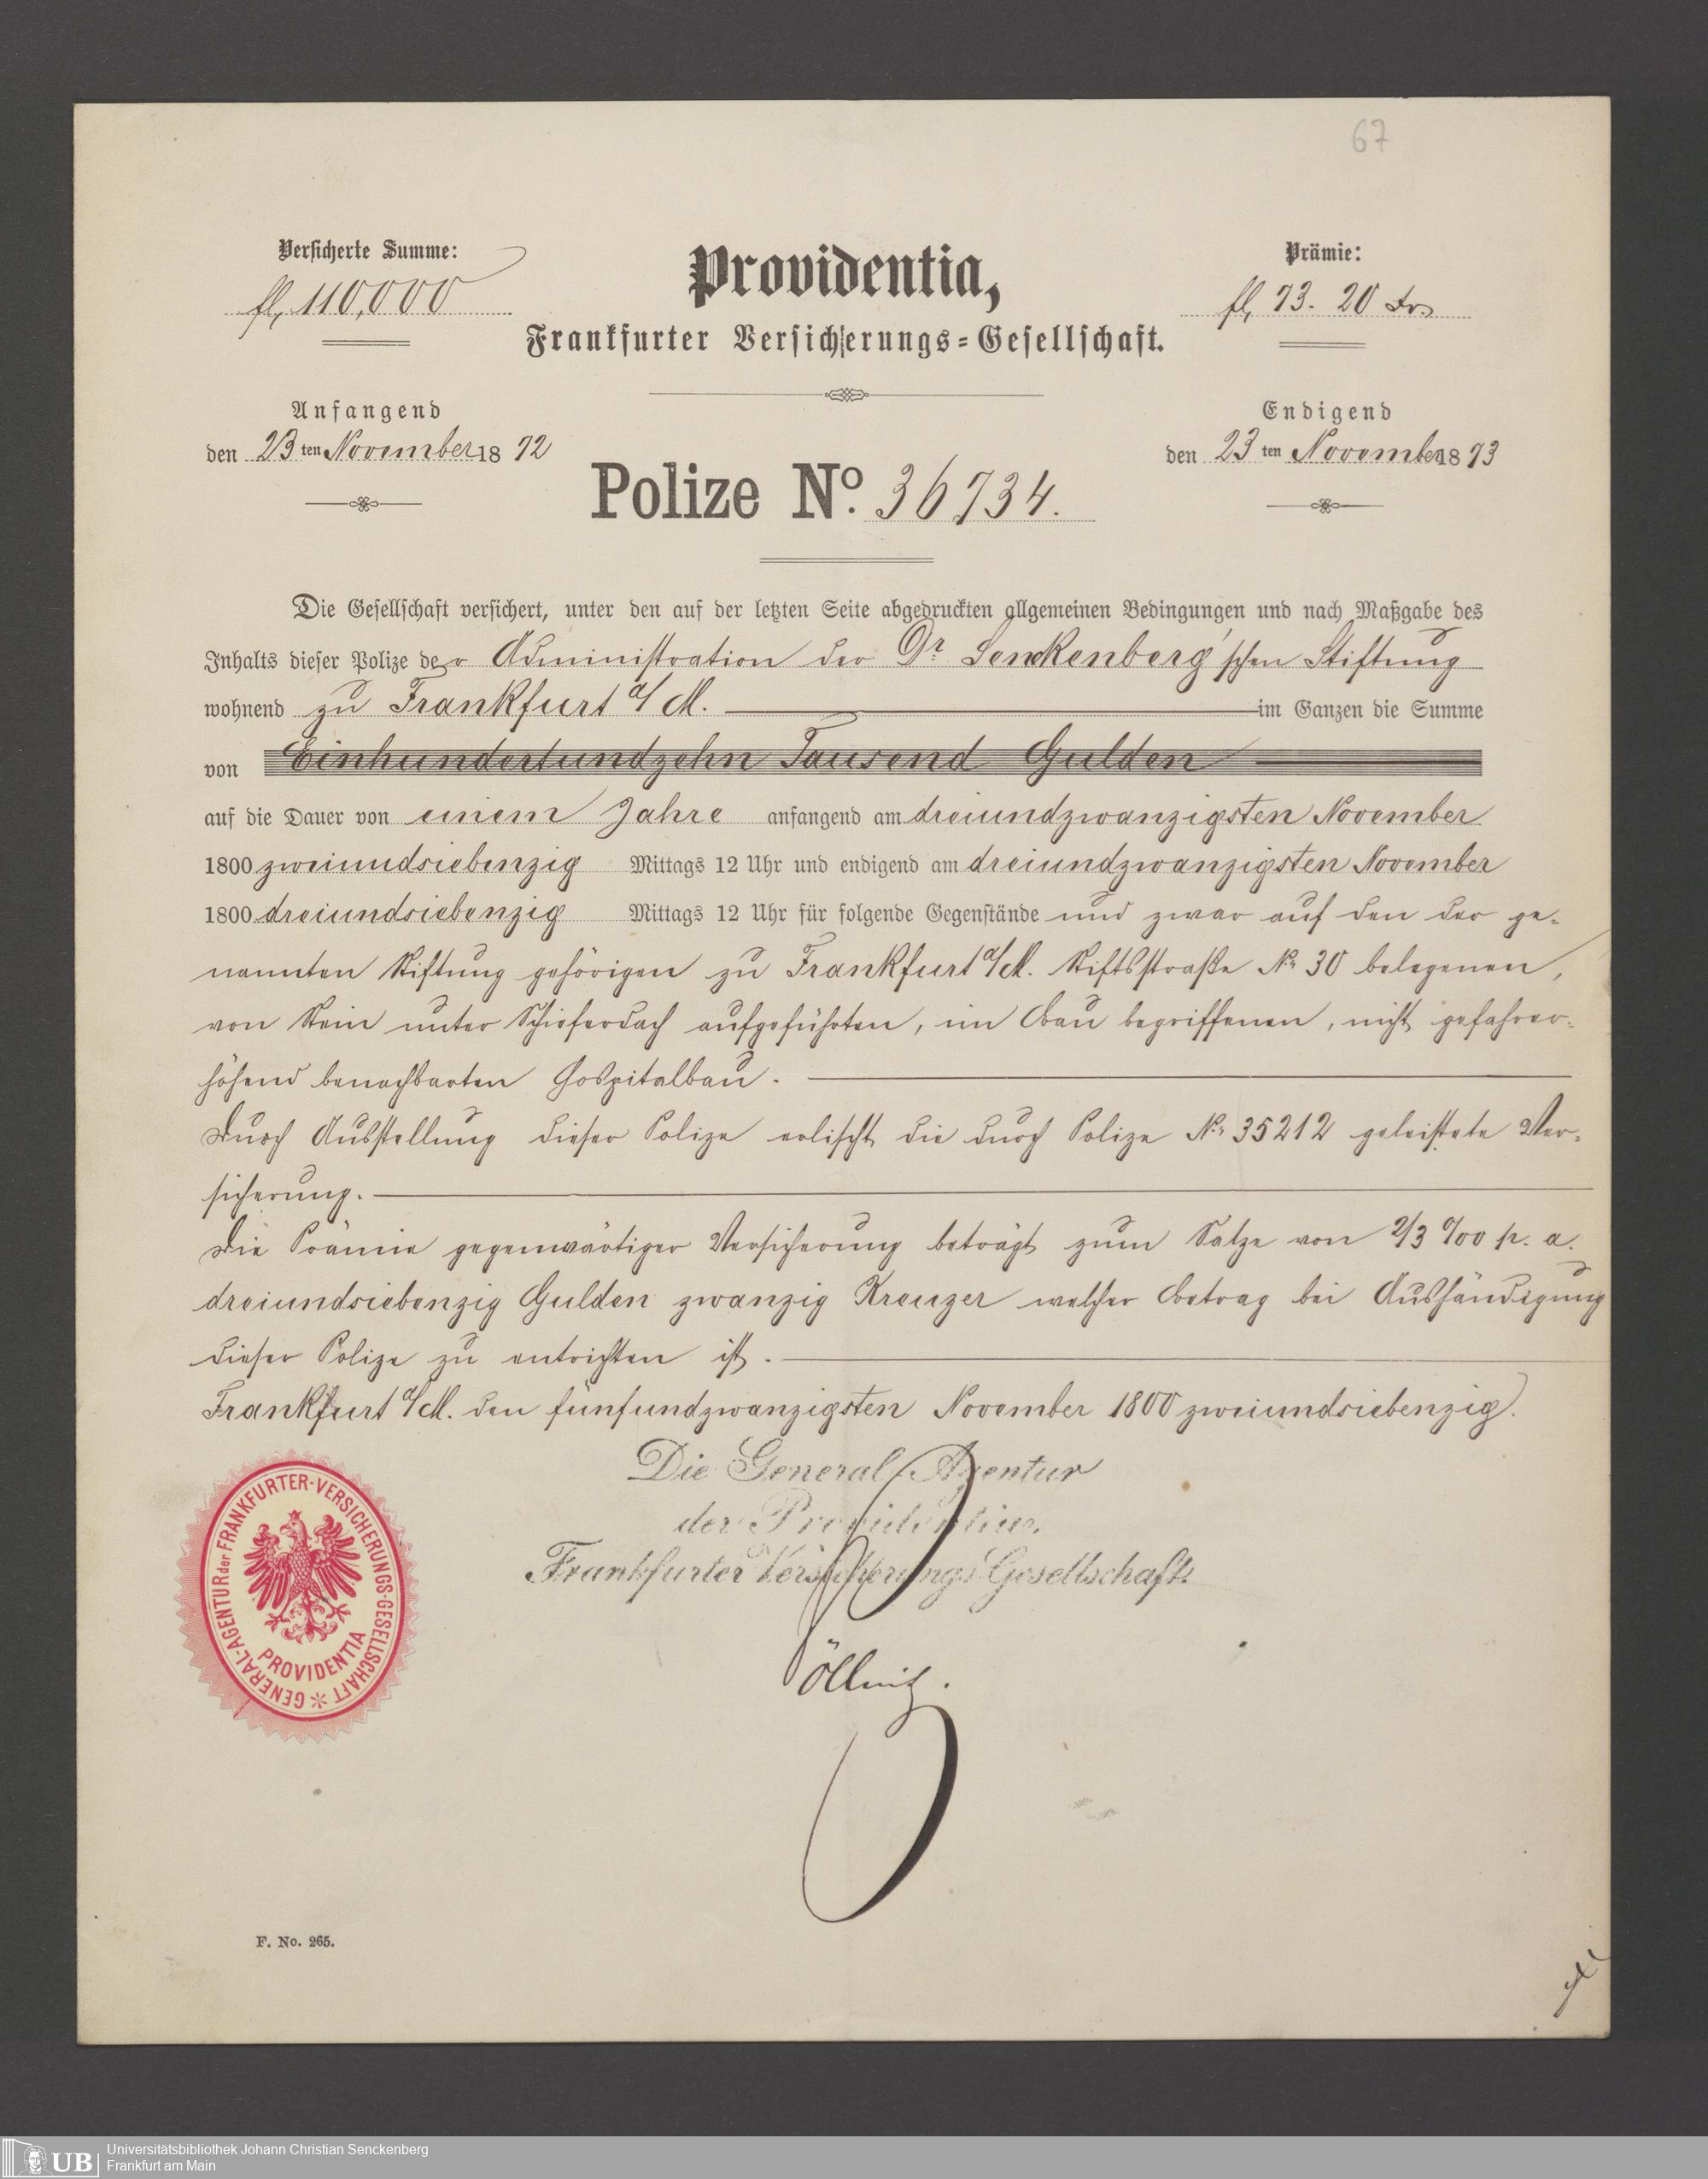 67
Versicherte Summe:
fl, 110,000
Providentia,
Frankfurter Versicherungs-Gesellschaft.
Prämie:
fl, 73. 20 Kr.
Anfangend
den 23ten November 1872
Endigend
den 23ten November 1873
Polize No. 36734.
Die Gesellschaft versichert, unter den auf der letzten Seite abgedruckten allgemeinen Bedingungen und nach Maßgabe des
Inhalts dieser Polize der Administration der Dr. Senckenberg'schen Stiftung
wohnend zu Frankfurt a/M. im Ganzen die Summe
von Einhundertundzehn Tausend Gulden
auf die Dauer von einem Jahre anfangend am dreiundzwanzigsten November
1800 zweiundsiebenzig Mittags 12 Uhr und endigend am dreiundzwanzigsten November
1800 dreiundsiebenzig Mittags 12 Uhr für folgende Gegenstände und zwar auf den der ge-
nannten Stiftung gehörigen zu Frankfurt a/M. Stiftsstraße No. 30 belegenen,
von Stein unter Schieferdach aufgeführten, im Bau begriffenen, nicht gefahrer-
höhend benachbarten Hospitalbau.
Durch Ausstellung dieser Polize erlischt die durch Polize No. 35212 geleistete Ver-
sicherung.
Die Prämie gegenwärtiger Versicherung beträgt zum Satze von 2/3 ‰ p. a.
dreiundsiebenzig Gulden zwanzig Kreuzer welcher Betrag bei Aushändigung
dieser Polize zu entrichten ist.
Frankfurt a/M. den fünfundzwanzigsten November 1800 zweiundsiebenzig.
Die General-Agentur
der Providentia,
Frankfurter Versicherungs-Gesellschaft.
Pöllnitz.
GENERAL-AGENTUR der FRANKFURTER-VERSICHERUNGS-GESELLSCHAFT
PROVIDENTIA
F. No. 265.
UB
Universitätsbibliothek Johann Christian Senckenberg
Frankfurt am Main